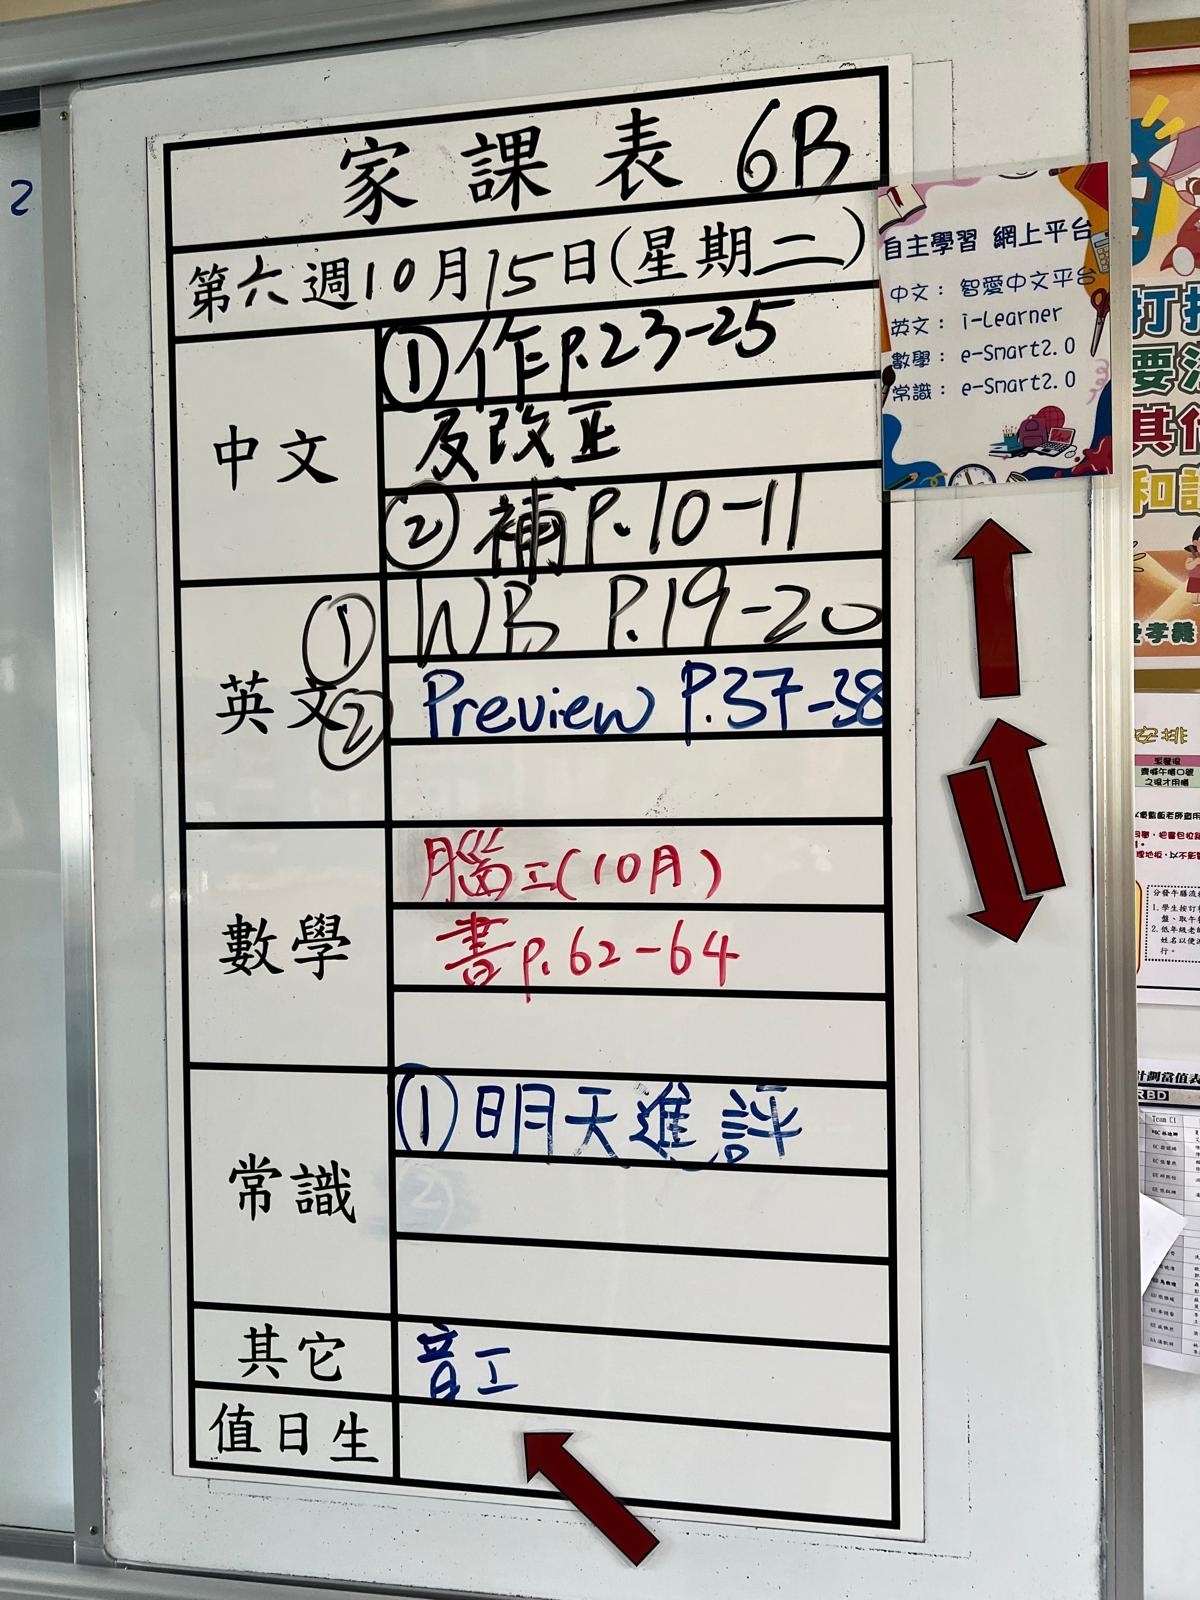 家課表 6B
第六週10月15日(星期二)
中文
①作P.23-25
及改正
②補P.10-11
英文
① WB P.19-20
② Preview P.37-38
數學
腦工(10月)
書p.62-64
常識
①明天進評
②
其它
音工
值日生
自主學習 網上平台
中文： 智愛中文平台
英文： i-Learner
數學： e-Smart2.0
常識： e-Smart2.0
2
打
要
其
和
計劃當值表
RBD
Team C1